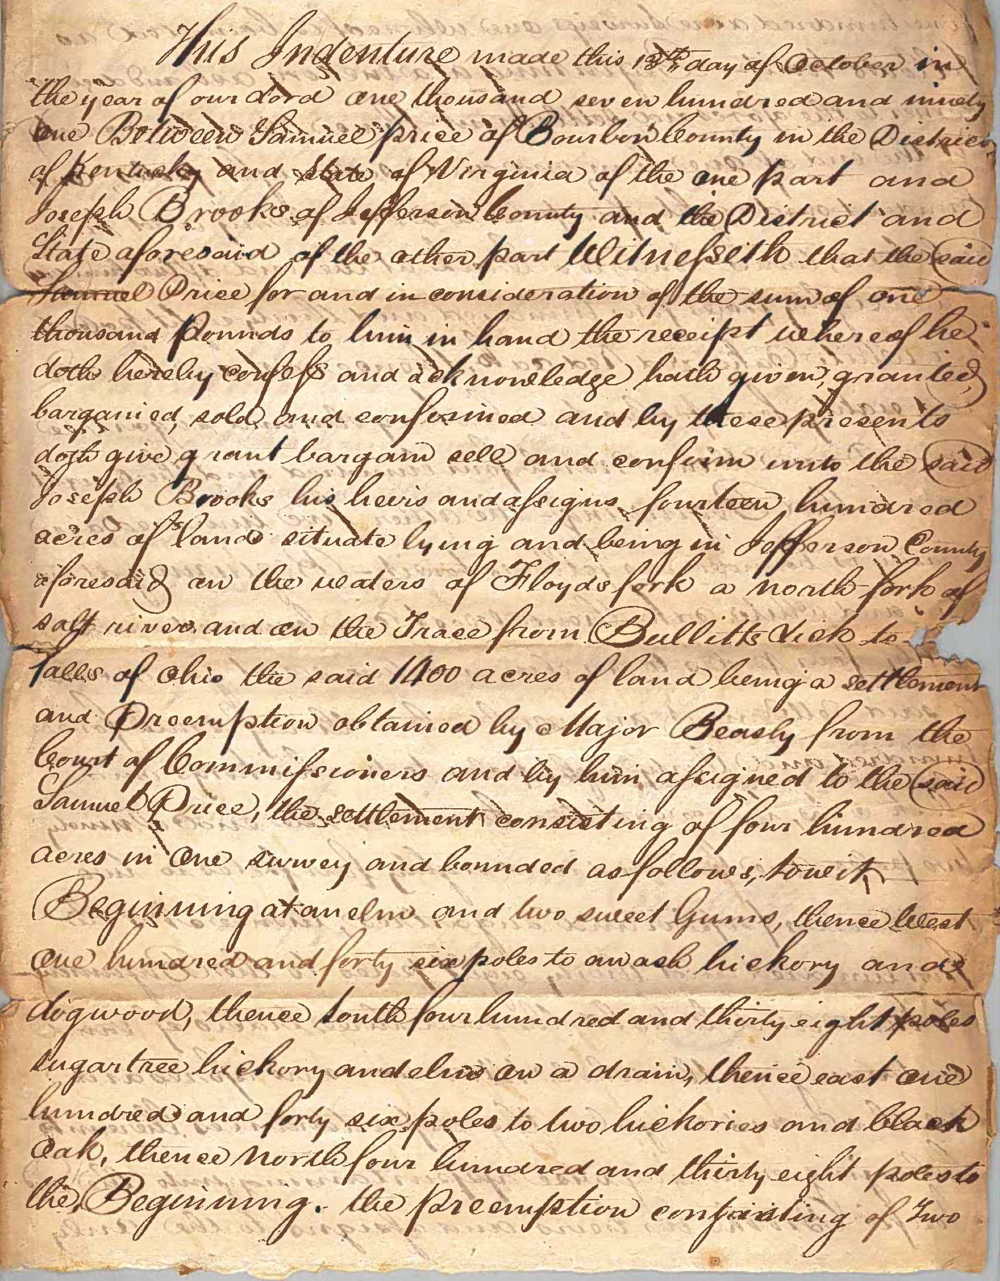 This Indenture made this 13th day of October in
the year of our Lord one thousand seven hundred and ninety
one Between Samuel price of Bourbon County in the District
of Kentucky and State of Virginia of the one part and
Joseph Brooks of Jefferson County and the District and
State aforesaid of the other part Witnesseth that the said
Samuel Price for and in consideration of the sum of one
thousand Pounds to him in hand the receipt whereof he
doth hereby confess and acknowledge hath given, granted,
bargained, sold, and confirmed and by these presents
doth give grant bargain sell and confirm unto the said
Joseph Brooks his heirs and assigns fourteen hundred
acres of land situate lying and being in Jefferson County
aforesaid on the waters of Floyds fork a north fork of
salt river and on the Trace from Bullitts Lick to
falls of Ohio the said 1400 acres of land being a settlement
and Preemption obtained by Major Beasly from the
Court of Commissioners and by him assigned to the said
Samuel Price, the settlement consisting of four hundred
acres in one survey and bounded as follows, towit,
Beginning at an elm and two sweet Gums, thence West
one hundred and forty six poles to an ash hickory and
dogwood, thence South four hundred and thirty eight poles
sugartree hickory and elm on a drain, thence east one
hundred and forty six poles to two hickories and black
Oak, thence North four hundred and thirty eight poles to
the Beginning. the preemption consisting of Two